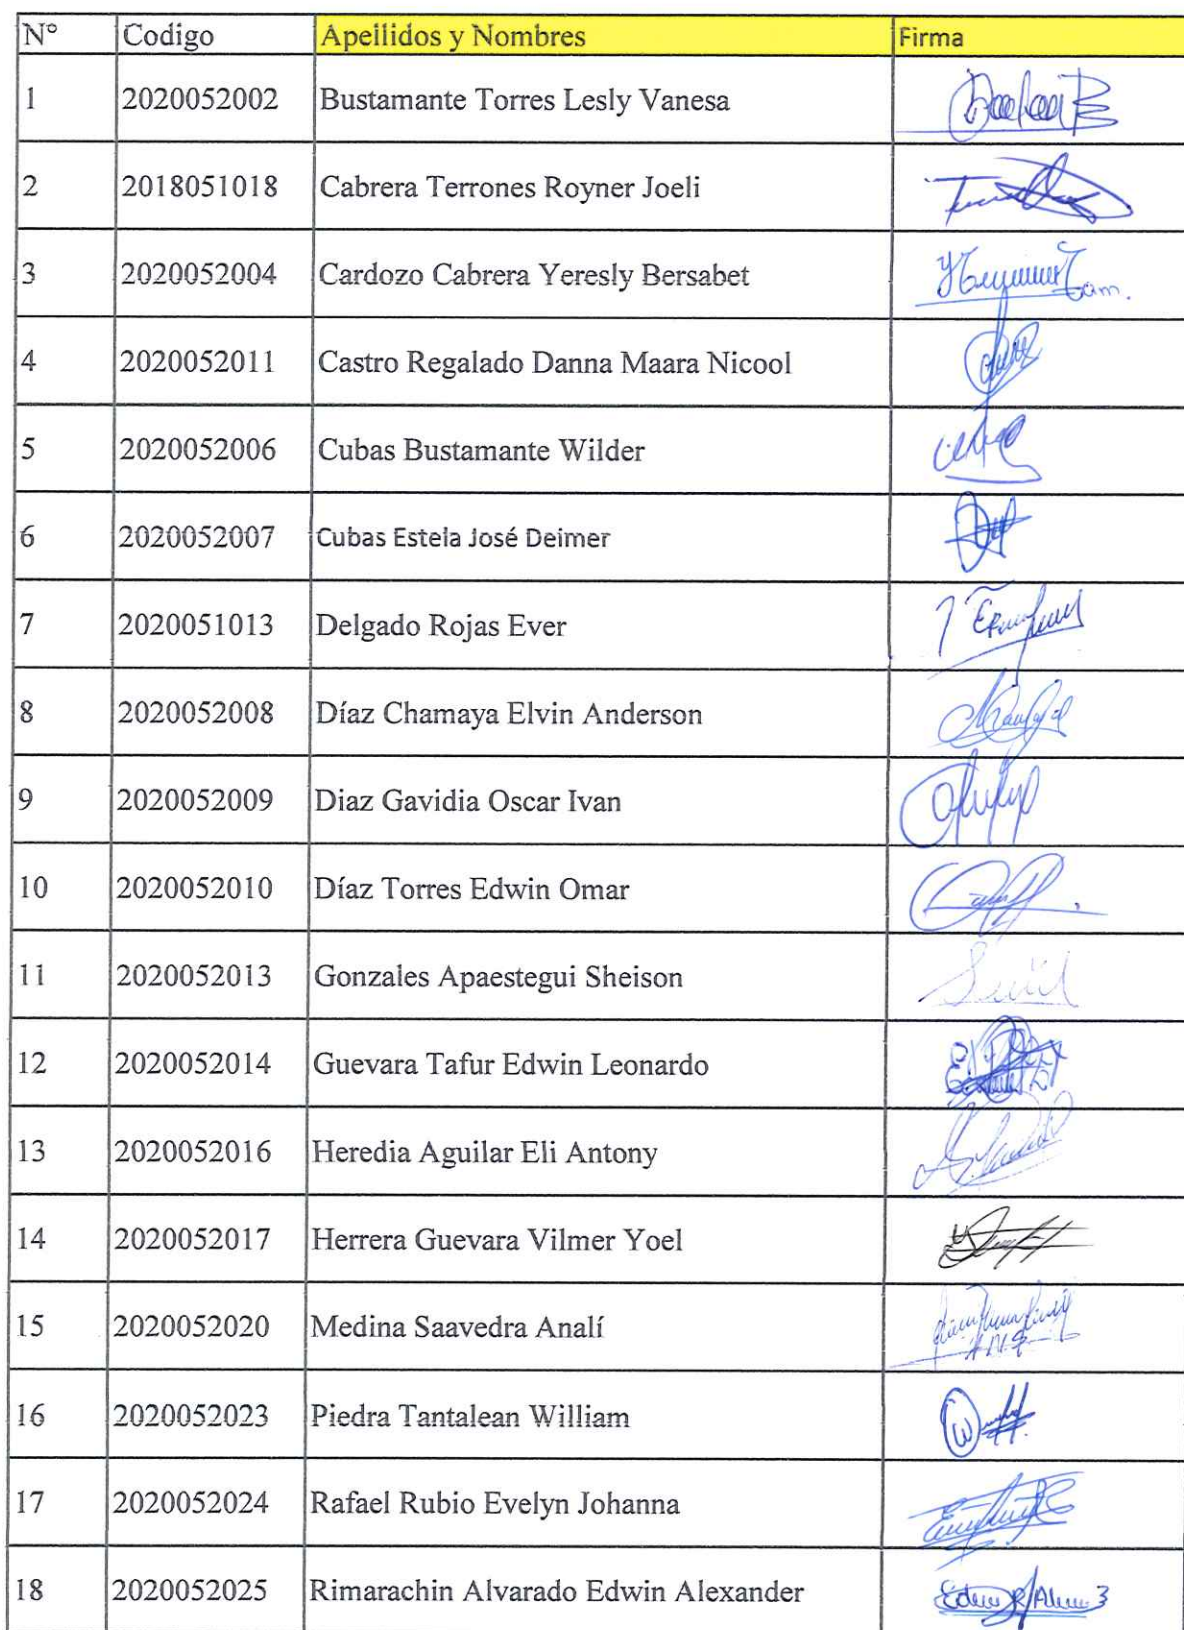 N° Codigo Apellidos y Nombres Firma
1 2020052002 Bustamante Torres Lesly Vanesa
2 2018051018 Cabrera Terrones Royner Joeli
3 2020052004 Cardozo Cabrera Yeresly Bersabet
4 2020052011 Castro Regalado Danna Maara Nicool
5 2020052006 Cubas Bustamante Wilder
6 2020052007 Cubas Estela José Deimer
7 2020051013 Delgado Rojas Ever
8 2020052008 Díaz Chamaya Elvin Anderson
9 2020052009 Diaz Gavidia Oscar Ivan
10 2020052010 Díaz Torres Edwin Omar
11 2020052013 Gonzales Apaestegui Sheison
12 2020052014 Guevara Tafur Edwin Leonardo
13 2020052016 Heredia Aguilar Eli Antony
14 2020052017 Herrera Guevara Vilmer Yoel
15 2020052020 Medina Saavedra Analí
16 2020052023 Piedra Tantalean William
17 2020052024 Rafael Rubio Evelyn Johanna
18 2020052025 Rimarachin Alvarado Edwin Alexander